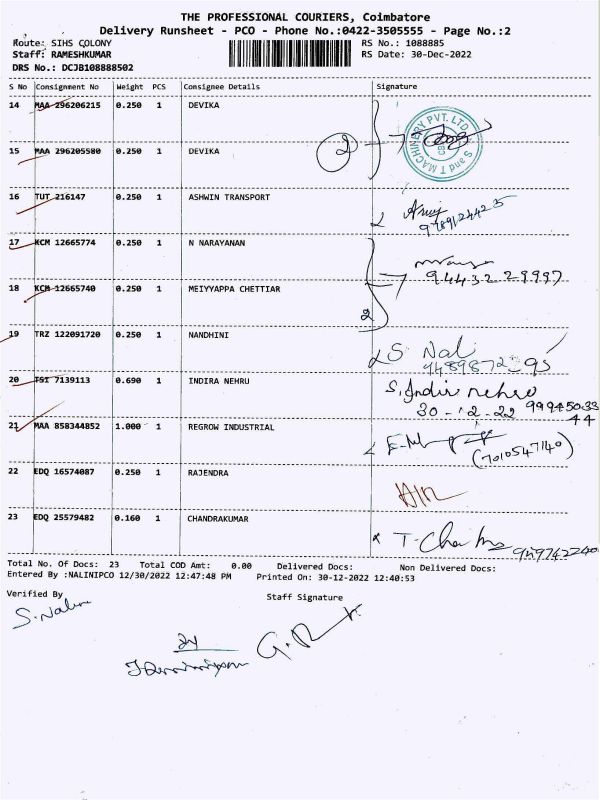 THE PROFESSIONAL COURIERS, Coimbatore
Delivery Runsheet - PCO - Phone No.:0422-3505555 - Page No.:2
Route: SIHS COLONY RS No.: 1088885
Staff: RAMESHKUMAR RS Date: 30-Dec-2022
DRS No.: DCJB108888502
S No Consignment No Weight PCS Consignee Details Signature
14 MAA 296206215 0.250 1 DEVIKA
MACHINERY PVT. LTD
S and T
2
15 MAA 296205580 0.250 1 DEVIKA
16 TUT 216147 0.250 1 ASHWIN TRANSPORT
17 KCM 12665774 0.250 1 N NARAYANAN
94432 29997
18 KCM 12665740 0.250 1 MEIYYAPPA CHETTIAR
2
19 TRZ 122091720 0.250 1 NANDHINI
S. Nal
20 TSI 7139113 0.690 1 INDIRA NEHRU
S. Indira nehro
30-12-22 9994503344
21 MAA 858344852 1.000 1 REGROW INDUSTRIAL
(7010547140)
22 EDQ 16574087 0.250 1 RAJENDRA
23 EDQ 25579482 0.160 1 CHANDRAKUMAR
Total No. Of Docs: 23 Total COD Amt: 0.00 Delivered Docs: Non Delivered Docs:
Entered By :NALINIPCO 12/30/2022 12:47:48 PM Printed On: 30-12-2022 12:40:53
Verified By Staff Signature